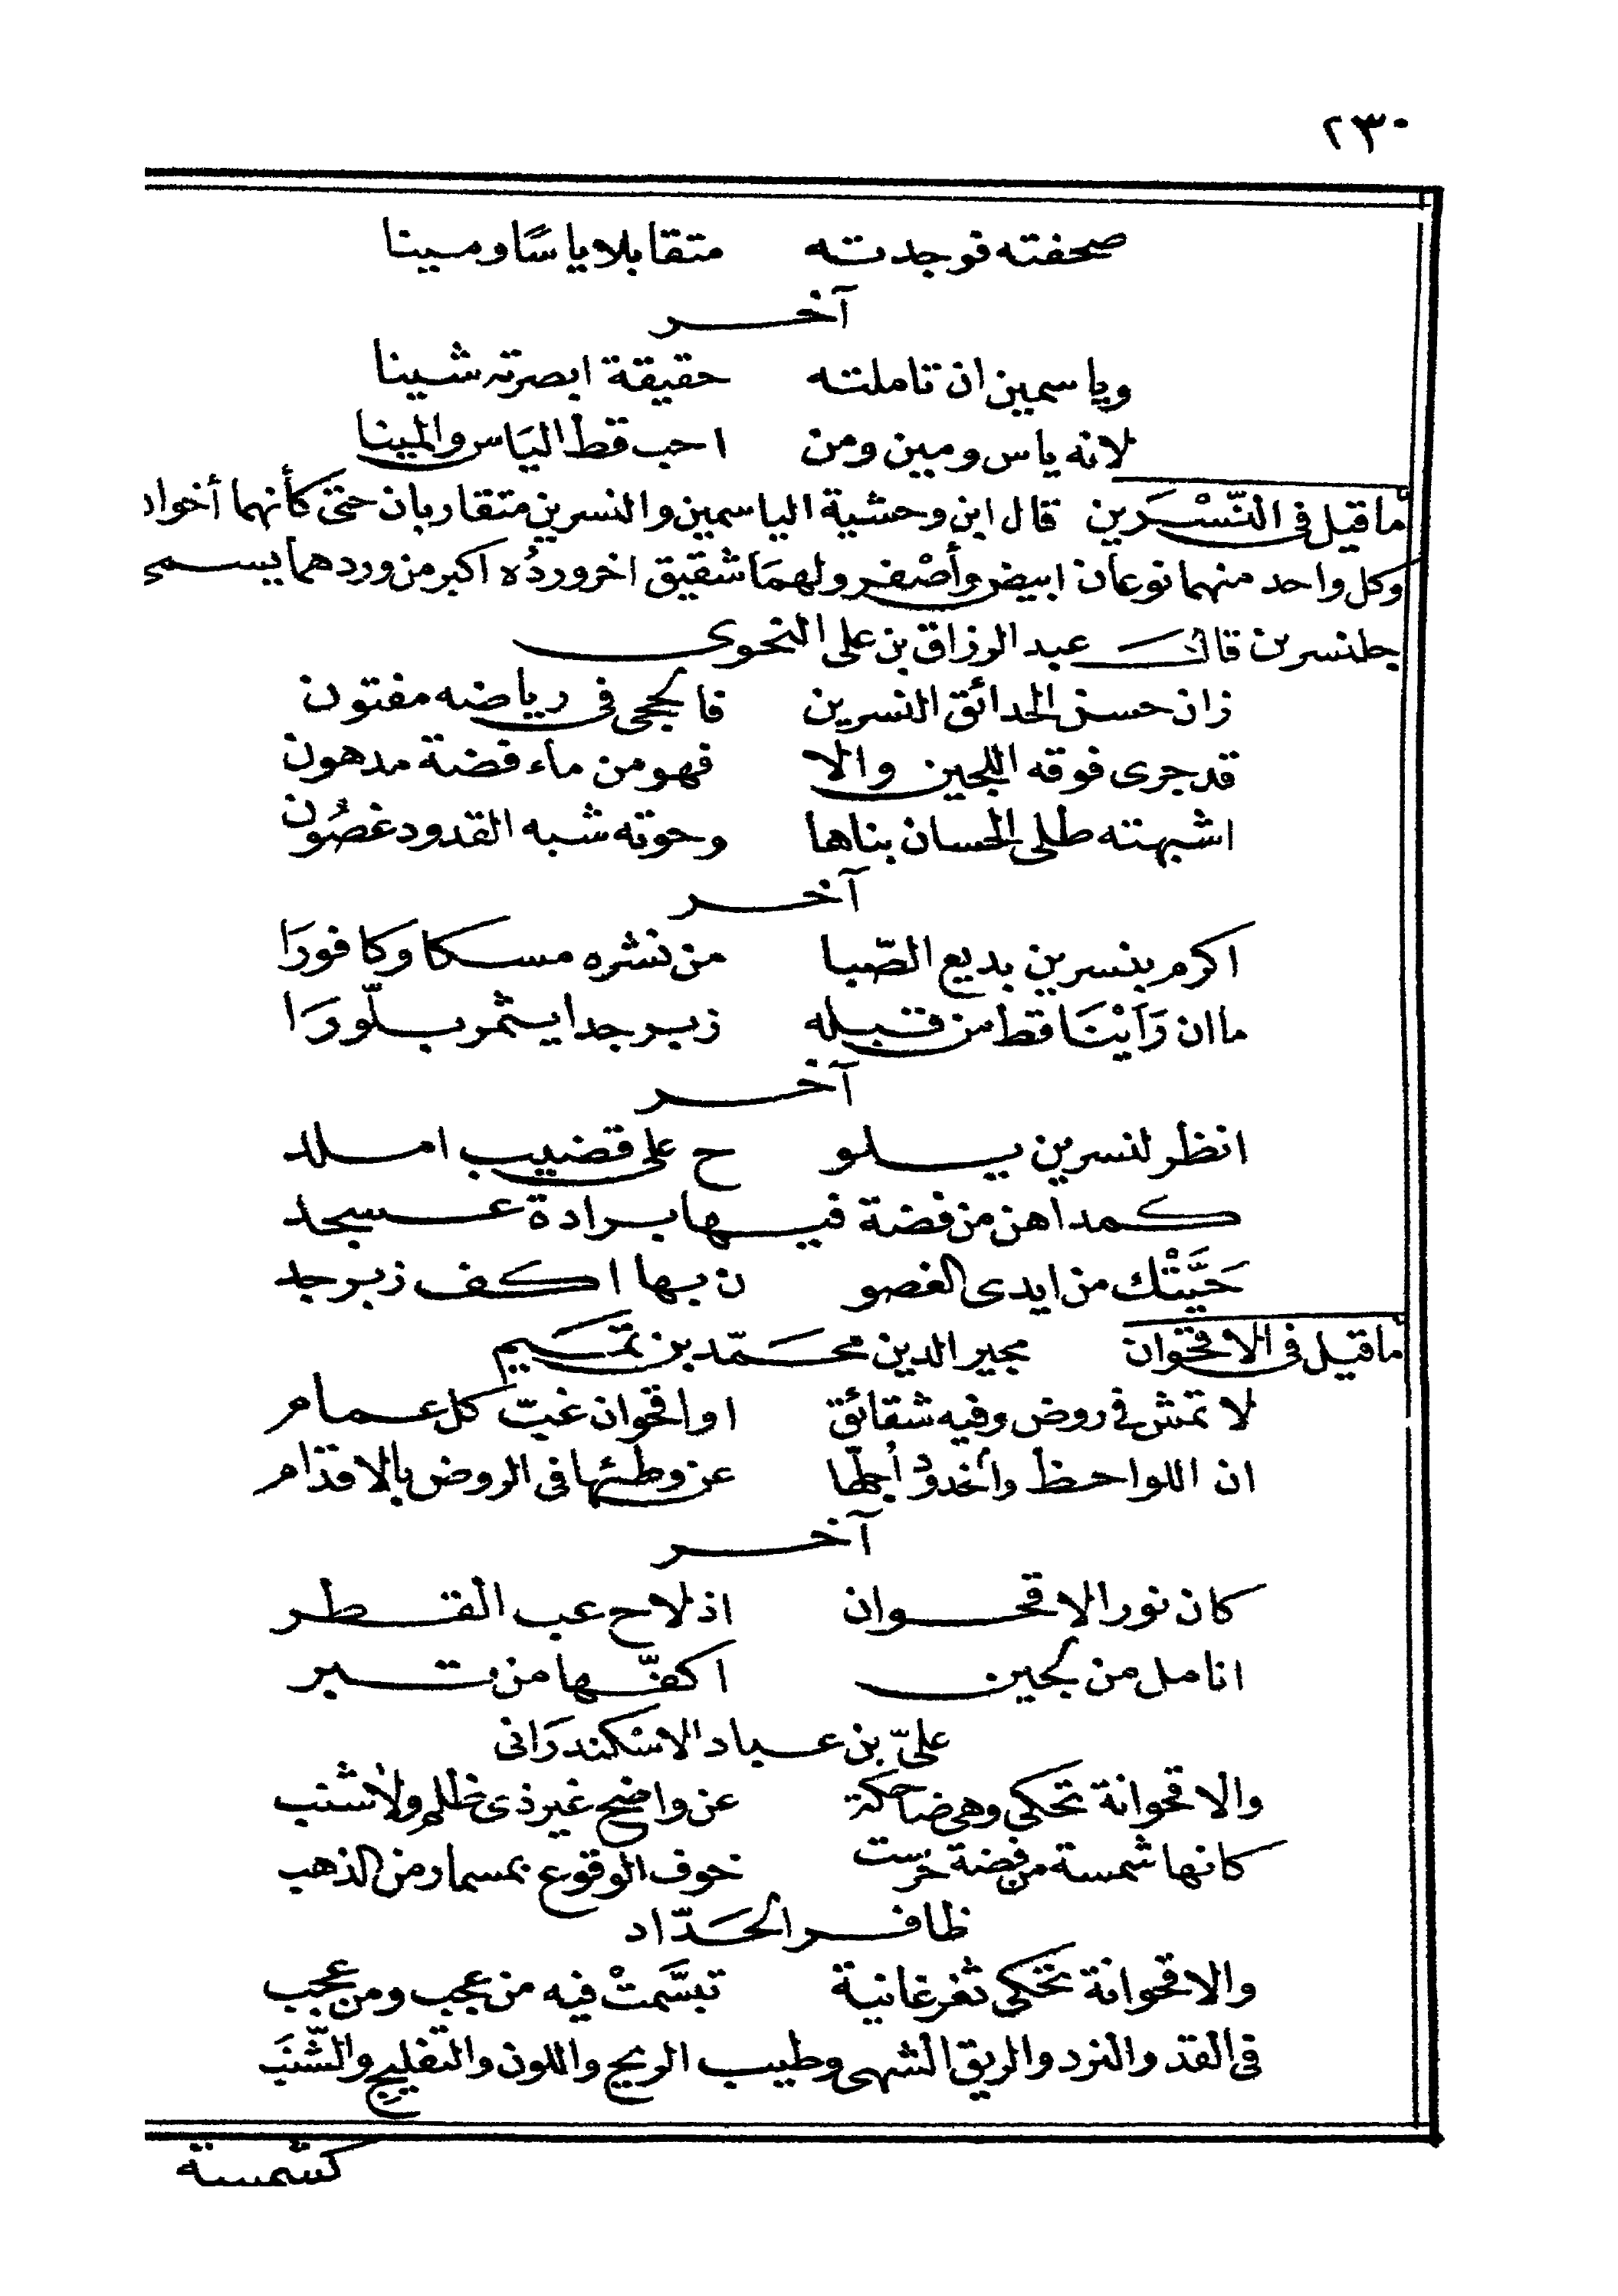 ٢٣٠
صحفته فوجدته متقابلا ياسًا ومينا
آخر
وياسمين ان تاملته حقيقة ابصرته شينا
لانه ياس ومين ومن احب قط الياس والمينا
ما قيل في النّسْرين قال ابن وحشية الياسمين والنسرين متقاربان حتى كأنهما أخوان
وكل واحد منهما نوعان ابيض وأصْفر ولهمَا شقيق اخر وردُه اكبر من وردهما يسمى
جلنسرين قال عبد الرزاق بن على النحوى
زان حسن الحدائق النسرين فالحجى فى رياضه مفتون
قد جرى فوقه اللجين والا فهو من ماء فضة مدهون
اشبهته طلى الحسان بناها وحوته شبه القدود غصُون
آخر
اكرم بنسرين بديع الصّبا من نشره مسكا وكافورَا
ما ان رَأيْنَا قط من قبله زبرجدا يثمر بلّورَا
آخر
انظر لنسرين يلو ح على قضيب املد
كمداهن من فضة فيها برادة عسجد
حَيَّتْك من ايدى الغصو ن بها اكف زبرجد
ما قيل فى الاقحوان مجير الدين محمّد بن تميم
لا تمش فى روض وفيه شقائق او اقحوان غبّ كل عمام
ان اللواحظ وأخدود أجلها عن وطئها فى الروض بالاقدام
آخر
كان نور الاقحوان اذ لاح عب القطر
انامل من لجين اكفّها من تبر
علىّ بن عباد الاسكندرَانى
والاقحوانة تحكى وهى ضاحكة عن واضح غير ذى ظلم ولا شنب
كانها شمسة من فضة حرست خوف الوقوع بمسمار من الذهب
ظافر الحَدّاد
والاقحوانة تحكى ثغر غانية تبسَّمتْ فيه من عجب ومن عجب
فى القد والبرد والريق الشهى وطيب الريح واللون والتفليج والشّنبَ
كشمسة